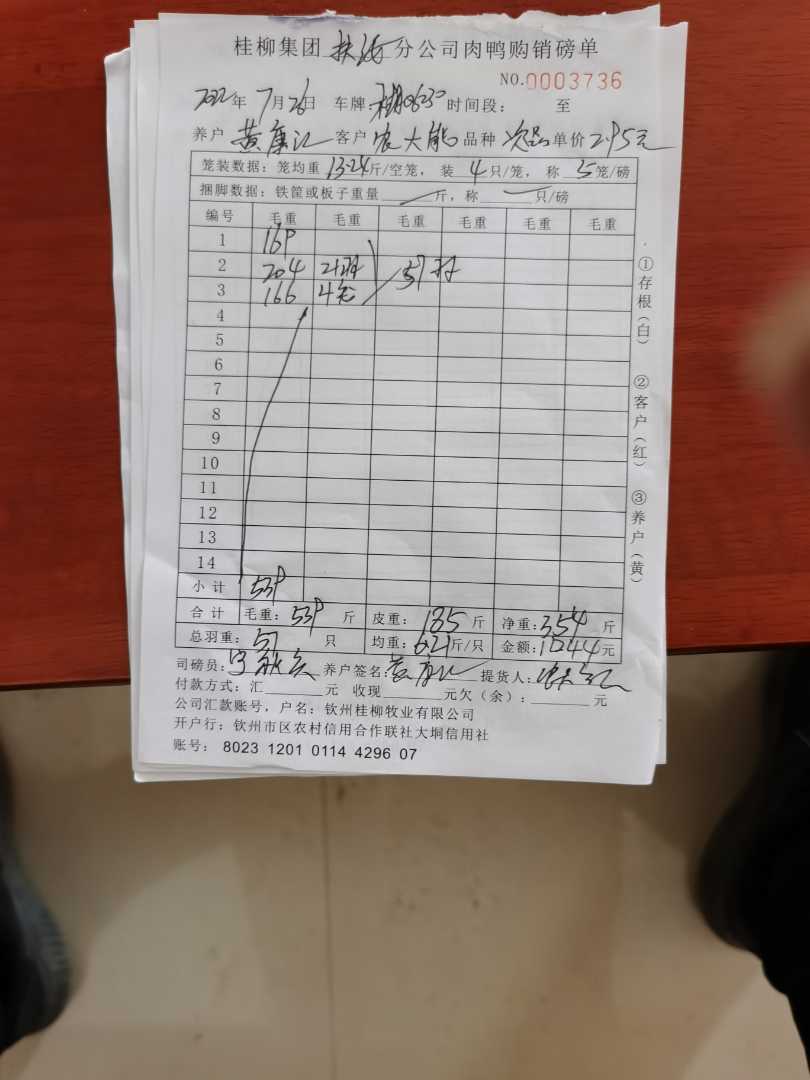 桂柳集团 扶绥 分公司肉鸭购销磅单
NO.0003736
2022年 7月26日 车牌: 时间段: 至
养户 黄康江 客户 农大能 品种 次品 单价 2.95元
笼装数据: 笼均重 13.24斤/空笼, 装 4只/笼, 称 5笼/磅
捆脚数据: 铁筐或板子重量 斤, 称 只/磅
编号 毛重 毛重 毛重 毛重 毛重 毛重
1 169
2 204 21羽 57羽
3 166 4笼
4
5
6
7
8
9
10
11
12
13
14
小计 539
合计 毛重: 539 斤 皮重: 185 斤 净重: 354 斤
总羽重: 57 只 均重: 6.21斤/只 金额: 1044元
司磅员: 养户签名: 黄康江 提货人:
付款方式: 汇 元 收现 元欠(余): 元
公司汇款账号, 户名: 钦州桂柳牧业有限公司
开户行: 钦州市区农村信用合作联社大垌信用社
账号: 8023 1201 0114 4296 07
①存根(白) ②客户(红) ③养户(黄)